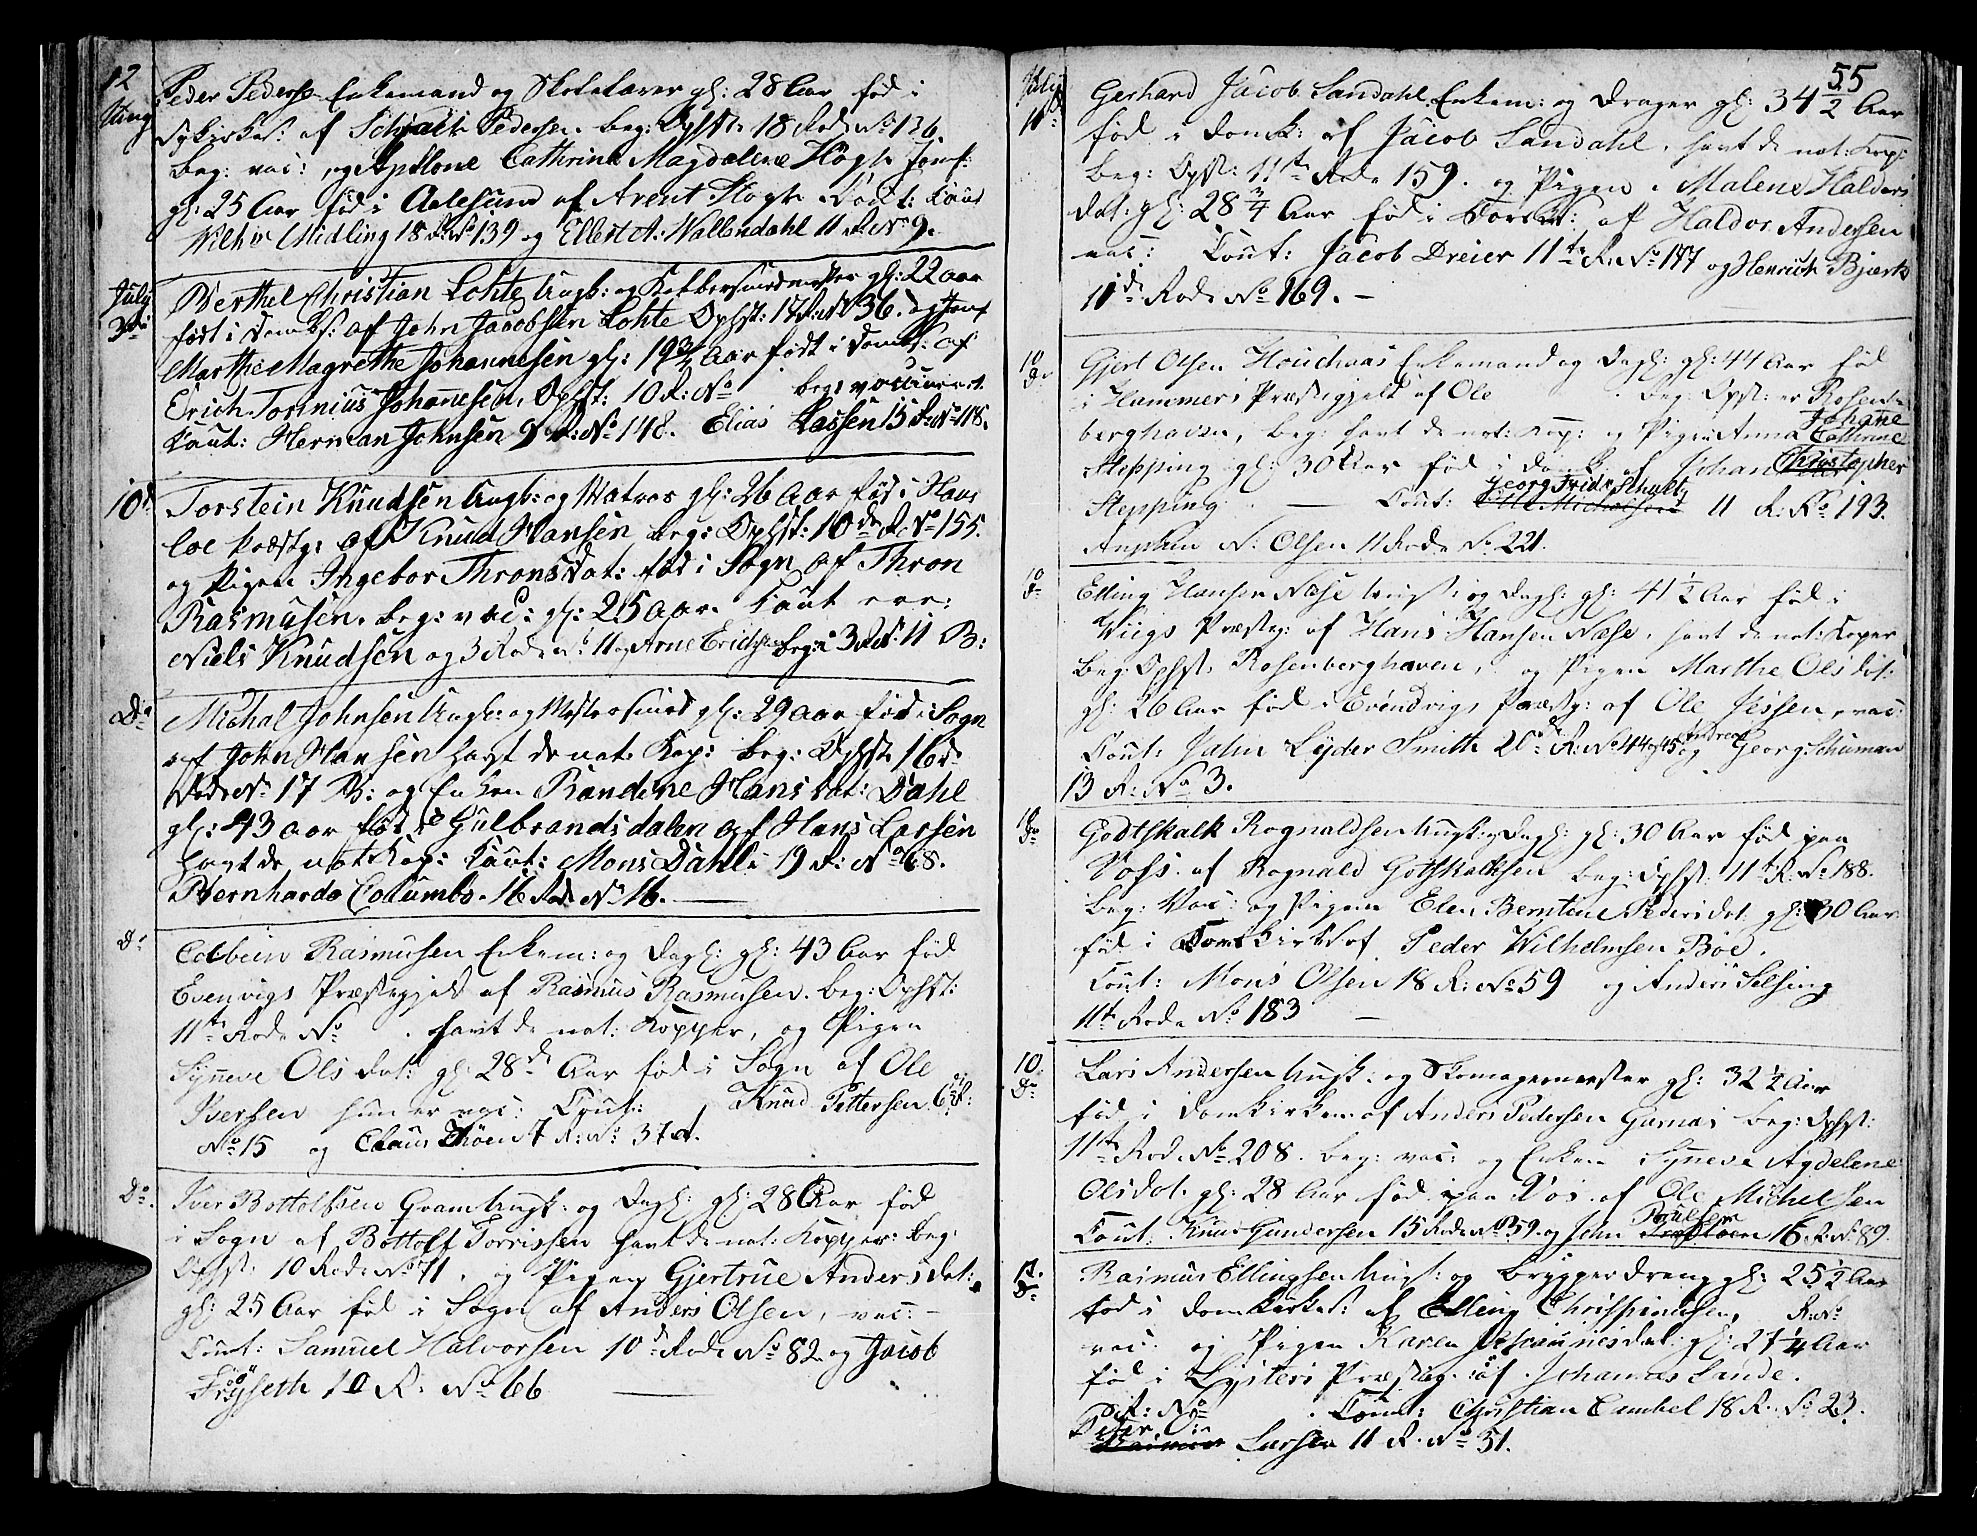 12 Peder Peders: Enkemand og Skolelærer gl: 28 Aar fød i
Nykirkes: af Pedersen. beg: Ophst: 18 Rode No 136.
beg: vac: og Apollone Cathrina Magdalene Høgh Jomf:
gl: 25 Aar fød i Aalesund af Arent Høgh Cout:
Wilh: Midling 18 R: No 139 og Ellert A: Wallendahl 11 R: No 9.
July 3die Berthel Christian Lohte Ungk: og Kobbersmedmester gl: 22 aar
født i Domks: af John Jacobsen Lohte Ophst: 17 R: No 36. og Jomf
Marthe Magrethe Johannesen gl: 19 3/4 Aar født i Domks: af
Erich Torinius Johannesen, Ophst: 10 R: No beg: vaccineret
Cout: Herman Johnsen 9 R: No 148. Elias Lassen 15 R: No 118.
10d Torstein Knudsen Ungk: og Matros gl: 26 Aar fød i Haus
loe Præstg: af Knud Hansen beg: Ophst: 10de R: No 155.
og Pigen Ingebor Throns dat: fød i Sogn af Thron
Rasmusen. beg: vac: gl: 25 aar. Cout
Niels Knudsen og 3 Rode No 11 og Arne Erichsen begge 3 Rd: 11 B:
Do Michal Johnsen Ungk: og Mestersmed gl: 29 aar fød i Sogn
af John Hansen havt de nat: Kop: beg: Ophst: 16de
Rode No 17 B: og Enken Randine Hans dat: Dahl
gl: 43 aar fød i Gulbrandsdalen af Hans Larsen
havt de nat: Kop: Cout: Mons Dahl 19 R: No 68.
Bernhardo Columbo. 16 Rode No 16.
Do Colbein Rasmusen Enkem: og Dagl: gl: 43 Aar fød
Evenvigs Præstegjeld af Rasmus Rasmusen. beg: Ophst:
11te Rode No . havt de nat: Kopper, og Pigen
Synneve Ols dat: gl: 28de Aar fød i Sogn af Ole
Iversen hun er vac: Cout: Knud Pettersen 6 R:
No 15 og Claus Thoen 7 R: No 37 A.
Do Iver Bottolfsen Gram Ungk: og Dagl: gl: 28 Aar fød
i Sogn af Bottolf Torrissen havt de nat: Kopper: beg:
Ophst: 10 Rode No 71. og Pigen Gjertrue Anders dat:
gl: 25 Aar fød i Sogn af Anders Olsen, vac:
Cout: Samuel Halvorsen 10de Rode No 82 og Jacob
Frøyseth 10 R: No 66
55
July 10 Gerhard Jacob Sandahl Enkem: og Drager gl: 34 1/2 Aar
fød i Domk: af Jacob Sandahl, havt de nat: Kop:
beg: Ophst: 11te Rode 159. og Pigen Malene Halders
dat: gl: 28 3/4 Aar fød i Korsk: af Haldor Andersen
vac: Cout: Jacob Dreier 11te R: No 177 og Henrich Bjerk
11de Rode No 169.
10 Do Gjert Olsen Houchaas Enkemand og Dagl: gl: 44 Aar fød
i Hammers Præstegjeld af Ole beg: Ophst: er Rosen-
berghaven, beg: havt de nat: Kop: og Pigen Anna Johanne Cathrine
Stepping gl: 30 Aar fød i Domk. af Johan Christopher
Stepping Cout: Georg Fridr Schultz 11 R: No 193.
N: Olsen 11 Rode No 221.
10 Do Elling Hansen Nese Ungk: og Dagl: gl: 41 1/2 Aar fød i
Wiigs Præsteg: af Hans Hansen Nese, havt de nat: Koper
beg: Ophst: Rosenberghaven, og Pigen Marthe Ols dat:
gl: 26 Aar fød i Evindvigs Præstg: af Ole Jessen, vac:
Cout: John Lyder Smith 20de R: No 44 & 45 og Andreas Georg Schuman
13 R: No 3.
10 Do Godtskalk Rognaldsen Ungk: og Dagl: gl: 30 Aar fød paa
Voss. af Rognald Gotskalksen beg: Ophst: 11te R: No 188.
beg: Vac: og Pigen Elen Berntine Peders dat. gl: 30 Aar
fød i Domkirks af Peder Wilhelmsen Bøe.
Cout: Mons Olsen 18 R: No 59 og Anders Selsing
11te Rode No 183
10. Do Lars Andersen Ungk: og Skomagermester gl: 32 1/2 Aar
fød i Domkirken af Anders Pedersen Garnas beg: Ophst:
11te Rode No 208. beg: vac: og Enken Synneve Agdelene
Olsdat. gl: 28 Aar fød paa Vos af Ole Michelsen
Cout: Knud Gundersen 15 Rode No 59. og John Poulsen 16. R: No 89.
12. Do Rasmus Ellingsen Ungk: og bryggerdreng gl: 25 1/2 Aar
fød i Domkirkes: af Elling Chrispinusen, R: No
vac: og Pigen Karen Johannesdat: gl: 27 1/4 Aar
fød i Lysters Præsteg. af Johannes Sande.
R: No . Cout: Christian Cumbel 18 R. No 23.
Peter Larsen 11 R. No 51.